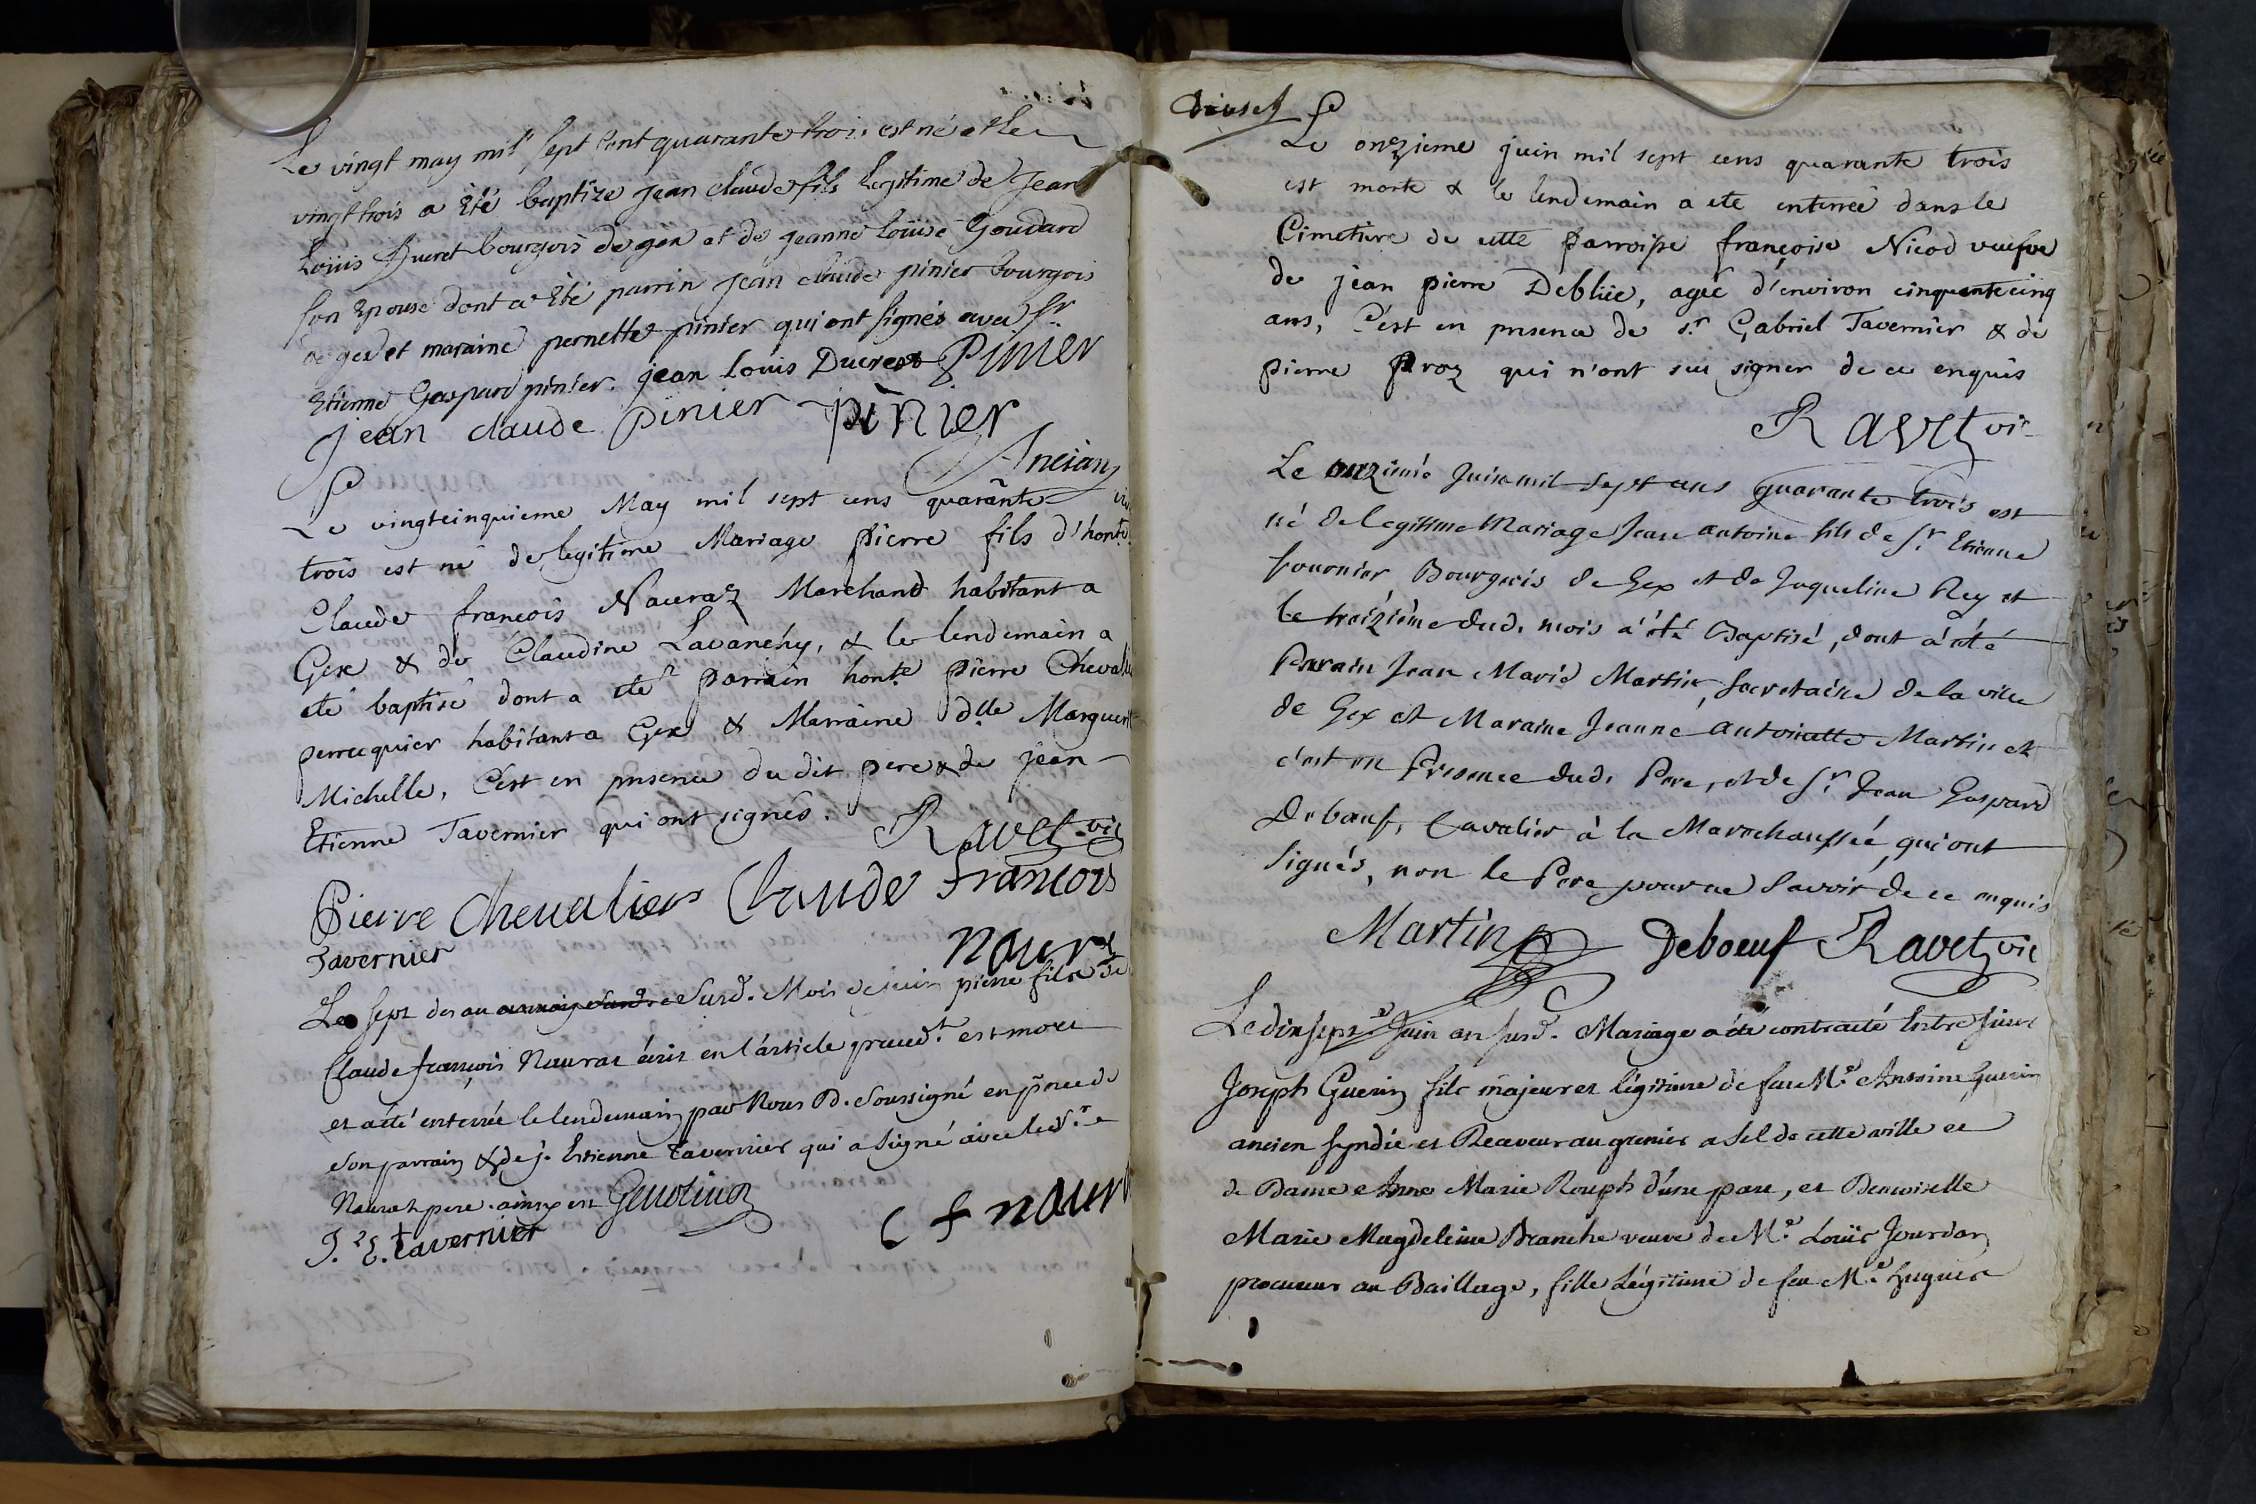 Le vingt may mil sept cent quarante trois est né et le
vingt trois a Eté baptize jean claude fils legitime de Jean
Loüis Ducret bourgois de gex et de jeanne loüise Goudard
son Epouse dont a Eté parrin jean claude pinier bourgois
de gex et maraine pernette pinier qui ont signés avec sr.
Etienne Gaspard pinier. jean louis Ducret Pinier
jean claude pinier pinier
Ancian
vic
Le vingtcinquieme May mil sept cens quarante
trois est né de legitime Mariage pierre fils d'hont.
Claude françois Nauraz Marchand habitant a
Gex & de Claudine Lavanchy, & le lendemain a
eté baptisé dont a eté parrain hont.e pierre Chevalie
perruquier habitant a Gex & Marraine dlle Marguerit
Michelle, C'est en presence dudit pere & de jean
Etienne Tavernier qui ont signés.
Ravet vic
Pierre Chevalier Claude francois
Tavernier
naura
Le sept des au susd. Mois de juin pierre fils de
Claude françois Nauraz écrit en l'article preced.t est mort
et a été enterré le lendemain par Nous P. soussigné en pñce de
son parrain & de j. Estienne Tavernier qui a signé avec led. sr.
Nauraz pere. ainsy est Genolin
J. E. tavernier
C f naur
Le onzieme juin mil sept cens quarante trois
est morte & le lendemain a eté enterreé dans le
Cimetiere de cette parroisse françoise Nicod veufve
de jean pierre Deblüe, agéé d'environ cinquante cinq
ans, C'est en presence de s.r Gabriel Tavernier & de
pierre proz qui n'ont sçu signer de ce enquis
Ravet vic
Le onzieme Juin mil sept cens quarante trois est
né de legitime Mariage Jean antoine fils de S.r Etienne
fournier Bourgeois de Gex et de Jaqueline Rey et
le treizième dud. mois a été Baptisé, dont a été
Parain Jean Marie Martin, secretaire de la ville
de Gex et Maraine Jeanne antoinette Martin et
c'est en Presence dud. Pere, et de S.r Jean Gaspard
Deboeuf, Cavalier à la Marechaussée, qui ont
signés, non le Pere pour ne savoir de ce enquis
Martin Deboeuf Ravet vic
Le dix sept.e Juin an susd. Mariage a été contracté Entre sieur
Joseph Guerin fils majeur et légitime de feu M.e Antoine Guerin
ancien syndic et Receveur au grenier a sel de cette ville et
de Dame Anne Marie Rouph d'une part, et Demoiselle
Marie Magdeleine Branche veuve de M.e Loüis Jourdan
procureur au Baillage, fille Légitime de feu M.e hugues